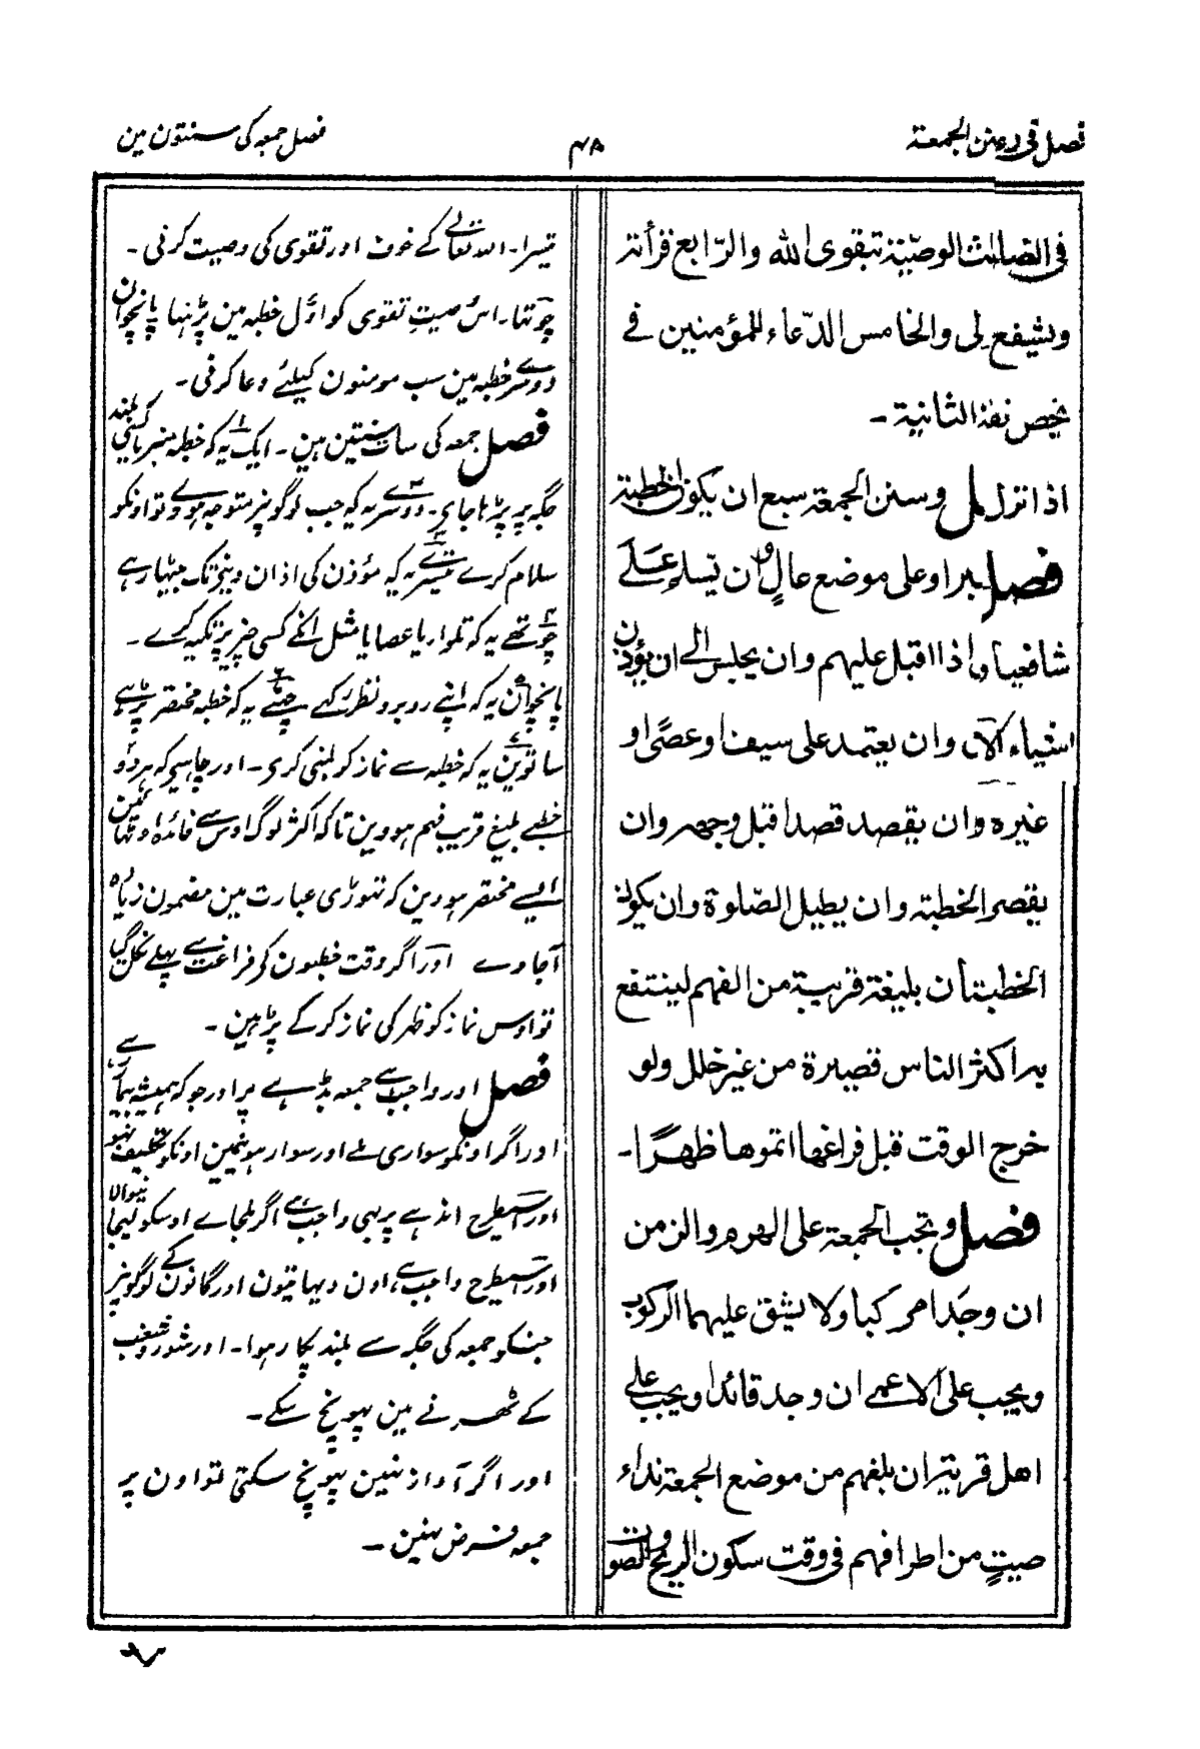 فصل فی سنن الجمعة
۴۸
فصل جمعہ کی سنتون مین
فی الثالث الوصیّة بتقوی الله والرّابع قرأة
ویشیفع لی والخامس الدّعاء للمؤمنین فے
یخص نفذ الثانیة۔
اذا نزل وسنن الجمعة سبع ان یکون الخطبة
فصل براوعلی موضع عالٍ وان یسلم علے
شافعیا واذا اقبل علیهم وان یجلس الے ان یؤذن
اشیاء الآن وان یعتمد علی سیف اوعصًی او
غیره وان یقصد قصدا قبل وجهه وان
یقصر الخطبة وان یطیل الصّلوة وان یکون
الخطبتان بلیغة قریبة من الفهم لینتفع
به اکثر الناس قصیرة من غیر خلل ولو
خرج الوقت قبل فراغها اتموها ظهرًا۔
فصل وتجب الجمعة علی الهرم والزمن
ان وجدا مرکبا ولا یشق علیهما الرکوب
ویجب علی الاعمے ان وجد قائدا ویجب علے
اهل قریة ان بلغهم من موضع الجمعة نداء
صیتٍ من اطرافهم فی وقت سکون الریح والصوت
تیسرا۔ اللہ تعالے کے خوف اور تقوی کی وصیت کرنی۔
چوتھا۔ اس وصیتِ تقوی کو اوّل خطبہ مین پڑہنا پانچوان
دوسرے خطبہ مین سب مومنون کیلئے دعا کرنی۔
فصل جمعہ کی سات سنتین ہین۔ ایک یہ کہ خطبہ منبر یا کسی بلند
جگہ پہ پڑہا جاے۔ دوسرے یہ کہ جب لوگونپر متوجہ ہووے تو اونکو
سلام کرے تیسرے یہ کہ مؤذن کی اذان دینے تک بیٹہا رہے
چوتھے یہ کہ تلوار یا عصا یا مثل انکے کسی چیز پر تکیہ کرے۔
پانچوان یہ کہ اپنے روبرو نظر رکہے چھٹے یہ کہ خطبہ مختصر پڑہے
ساتوین یہ کہ خطبہ سے نماز کو لمبی کری۔ اور چاہیے کہ ہر دو
خطبے بلیغ قریب فہم ہووین تاکہ اکثر لوگ اوس سے فائدہ اوٹہاوین
ایسے مختصر ہووین کہ تہوڑی عبارت مین مضمون زیادہ
آجاوے اور اگر وقت خطبون کو فراغت سے پہلے نکل گیا
تو اوس نماز کو ظہر کی نماز کرکے پڑہین۔
فصل اور واجب ہے جمعہ بڈہے پر اور جو کہ ہمیشہ بیمار ہے
اور اگر اونکو سواری ملے اور سوار ہونیمین اونکو تکلیف نہو
اور اسیطرح اندہے پر بہی واجب ہے اگر ملجاے اوسکو لیجانیوالا
اور اسیطرح واجب ہے اون دیہاتیون اور گانون کے لوگونپر
جنکو جمعہ کی جگہ سے بلند پکار ہوا۔ اور شور وشغب
کے ٹہرنے مین پہونچ سکے۔
اور اگر آواز نہین پہونچ سکتی تو اون پر
جمعہ فرض نہین۔